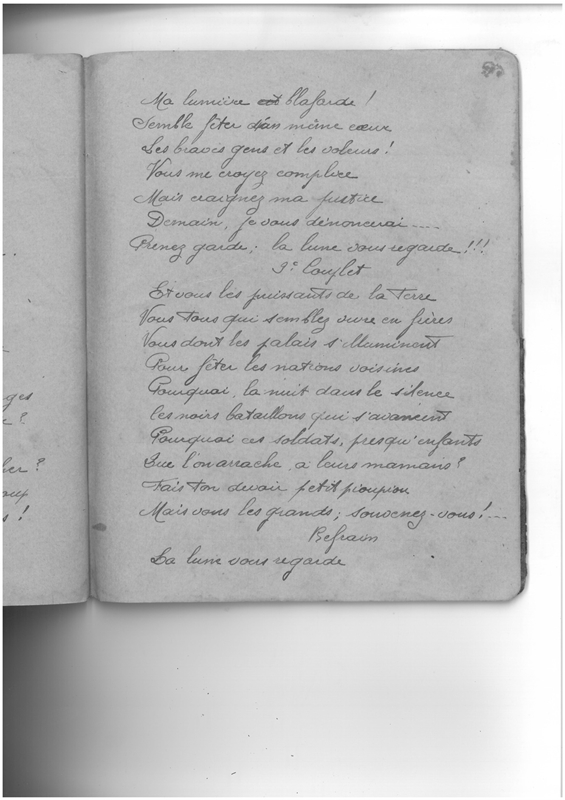 Ma lumière est blafarde !
Semble fêter d'un même cœur
Les braves gens et les voleurs !
Vous me croyez complice
Mais craignez ma justice
Demain, je vous dénoncerai ....
Prenez garde ; la lune vous regarde !!!
3e Couplet
Et vous les puissants de la Terre
Vous Tous qui semblez vivre en frères
Vous dont les palais s'illuminent
Pour fêter les nations voisines
Pourquoi, la nuit dans le silence
les noirs bataillons qui s'avancent
Pourquoi ces soldats, presqu'enfants
Que l'on arrache, a leurs mamans ?
Fais Ton devoir petit pioupiou
Mais vous les grands ; souvenez-vous ! ...
Refrain
La lune vous regarde
ges
e ?
her ?
oux
s !